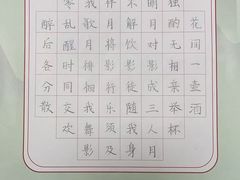 花间一壶酒
独酌无相亲举杯
明月对影成三人月
不解饮影徒随我身
伴月将影行乐须及
我歌月徘徊我舞影
零乱醒时相交欢
醉后各分散